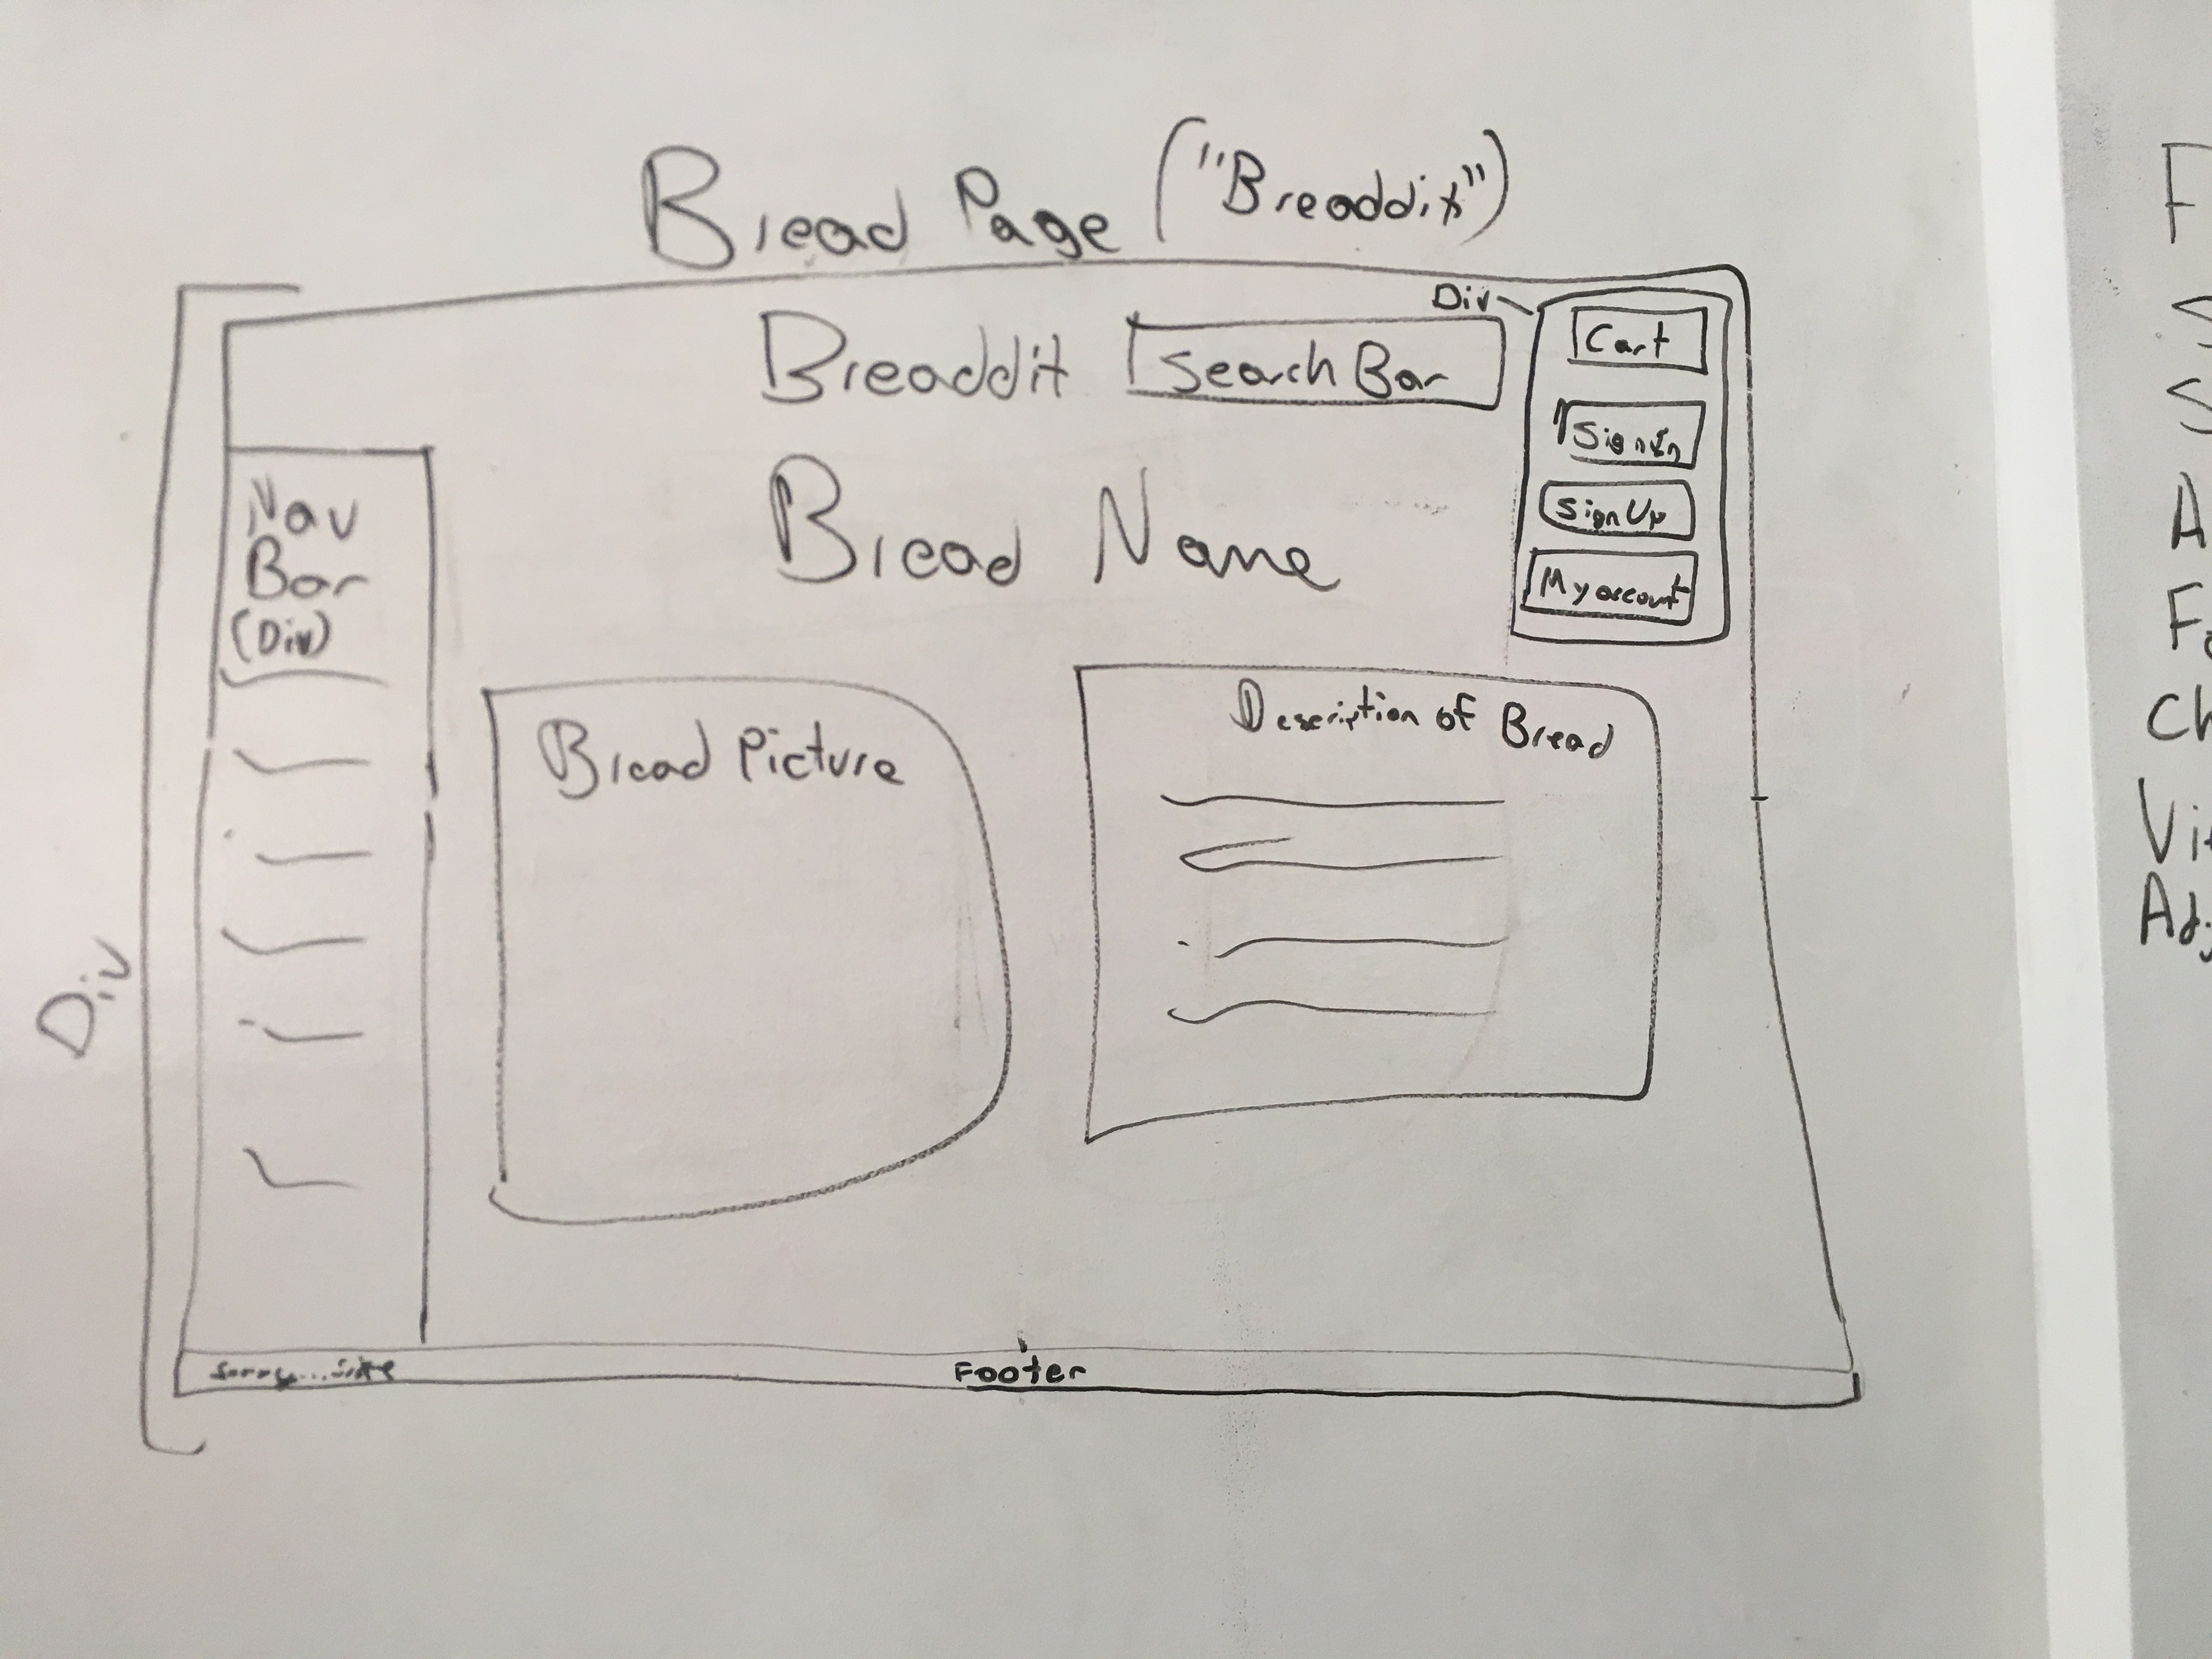 Bread Page ("Breaddit")
Div
Breaddit
Search Bar
Cart
Sign In
Sign Up
My account
Bread Name
Nav
Bar
(Div)
Bread Picture
Description of Bread
Div
Footer
F
S
S
A
Fo
Ch
Vi
Adj